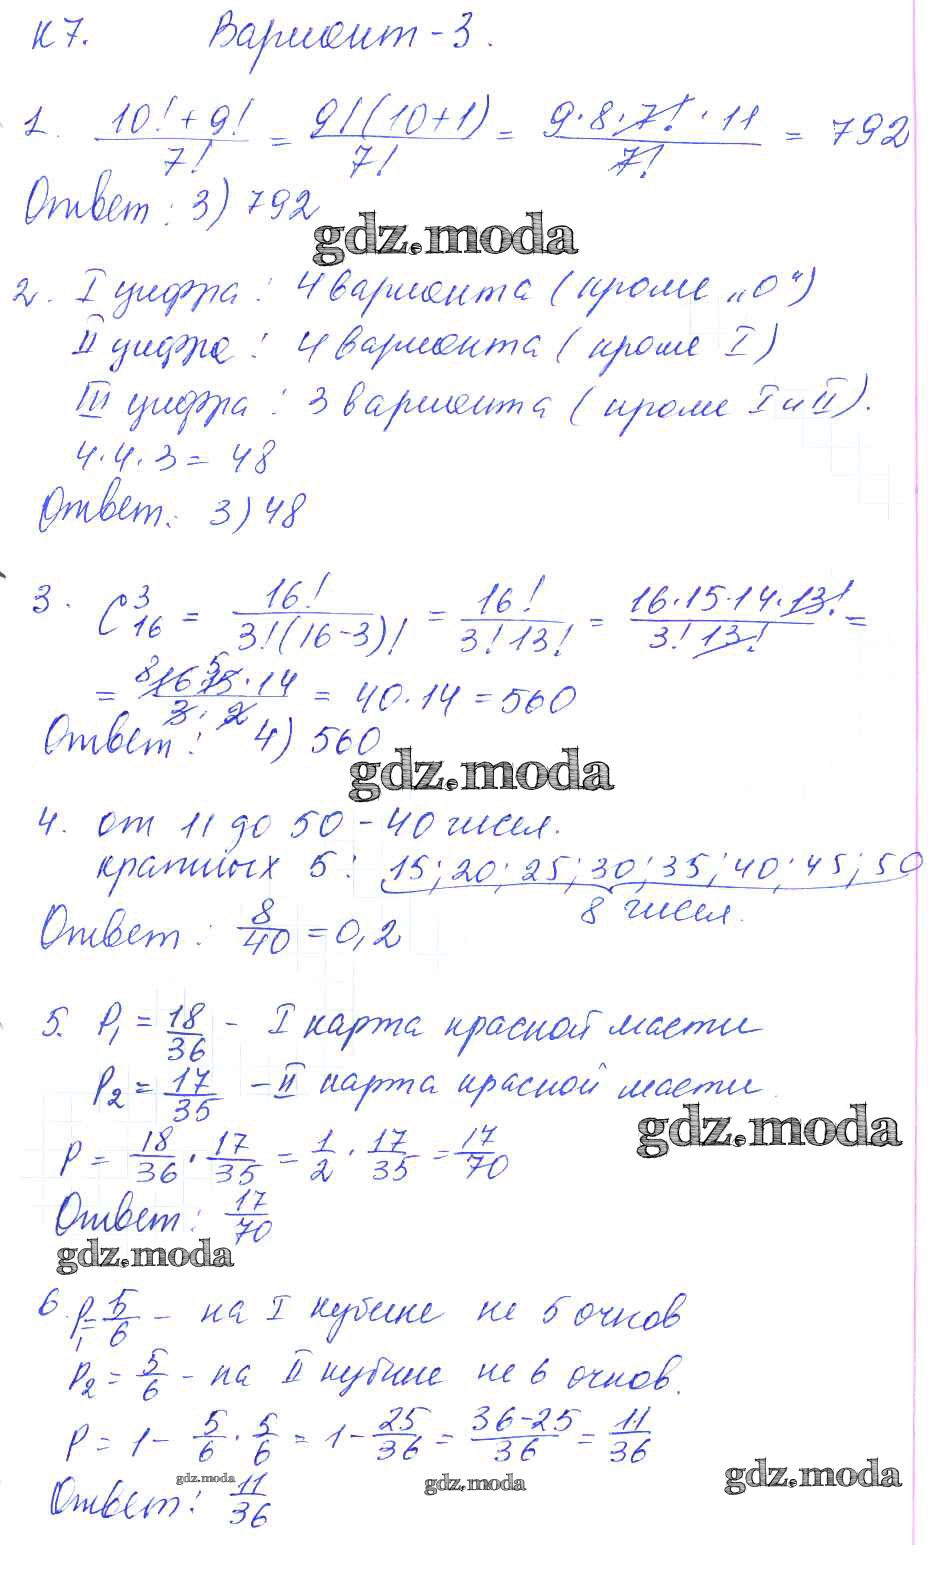 К7. Вариант-3.
1. (10!+9!)/7! = 9!(10+1)/7! = 9·8·7!·11/7! = 792
Ответ: 3) 792
gdz.moda
2. I цифра: 4 варианта (кроме „0“)
II цифра: 4 варианта (кроме I)
III цифра: 3 варианта (кроме I и II).
4·4·3=48
Ответ: 3) 48
3. C³₁₆ = 16!/3!(16-3)! = 16!/3!13! = 16·15·14·13!/3!13! =
= 8 16 5 15·14/3·2 = 40·14 = 560
Ответ: 4) 560
gdz.moda
4. от 11 до 50 – 40 чисел.
кратных 5: 15; 20; 25; 30; 35; 40; 45; 50
8 чисел.
Ответ: 8/40 = 0,2
5. P₁ = 18/36 – I карта красной масти
P₂ = 17/35 – II карта красной масти.
gdz.moda
P = 18/36 · 17/35 = 1/2 · 17/35 = 17/70
Ответ: 17/70
gdz.moda
6. P₁ = 5/6 – на I кубике не 5 очков
P₂ = 5/6 – на II кубике не 6 очков.
P = 1 - 5/6 · 5/6 = 1 - 25/36 = 36-25/36 = 11/36
gdz.moda gdz.moda gdz.moda
Ответ: 11/36